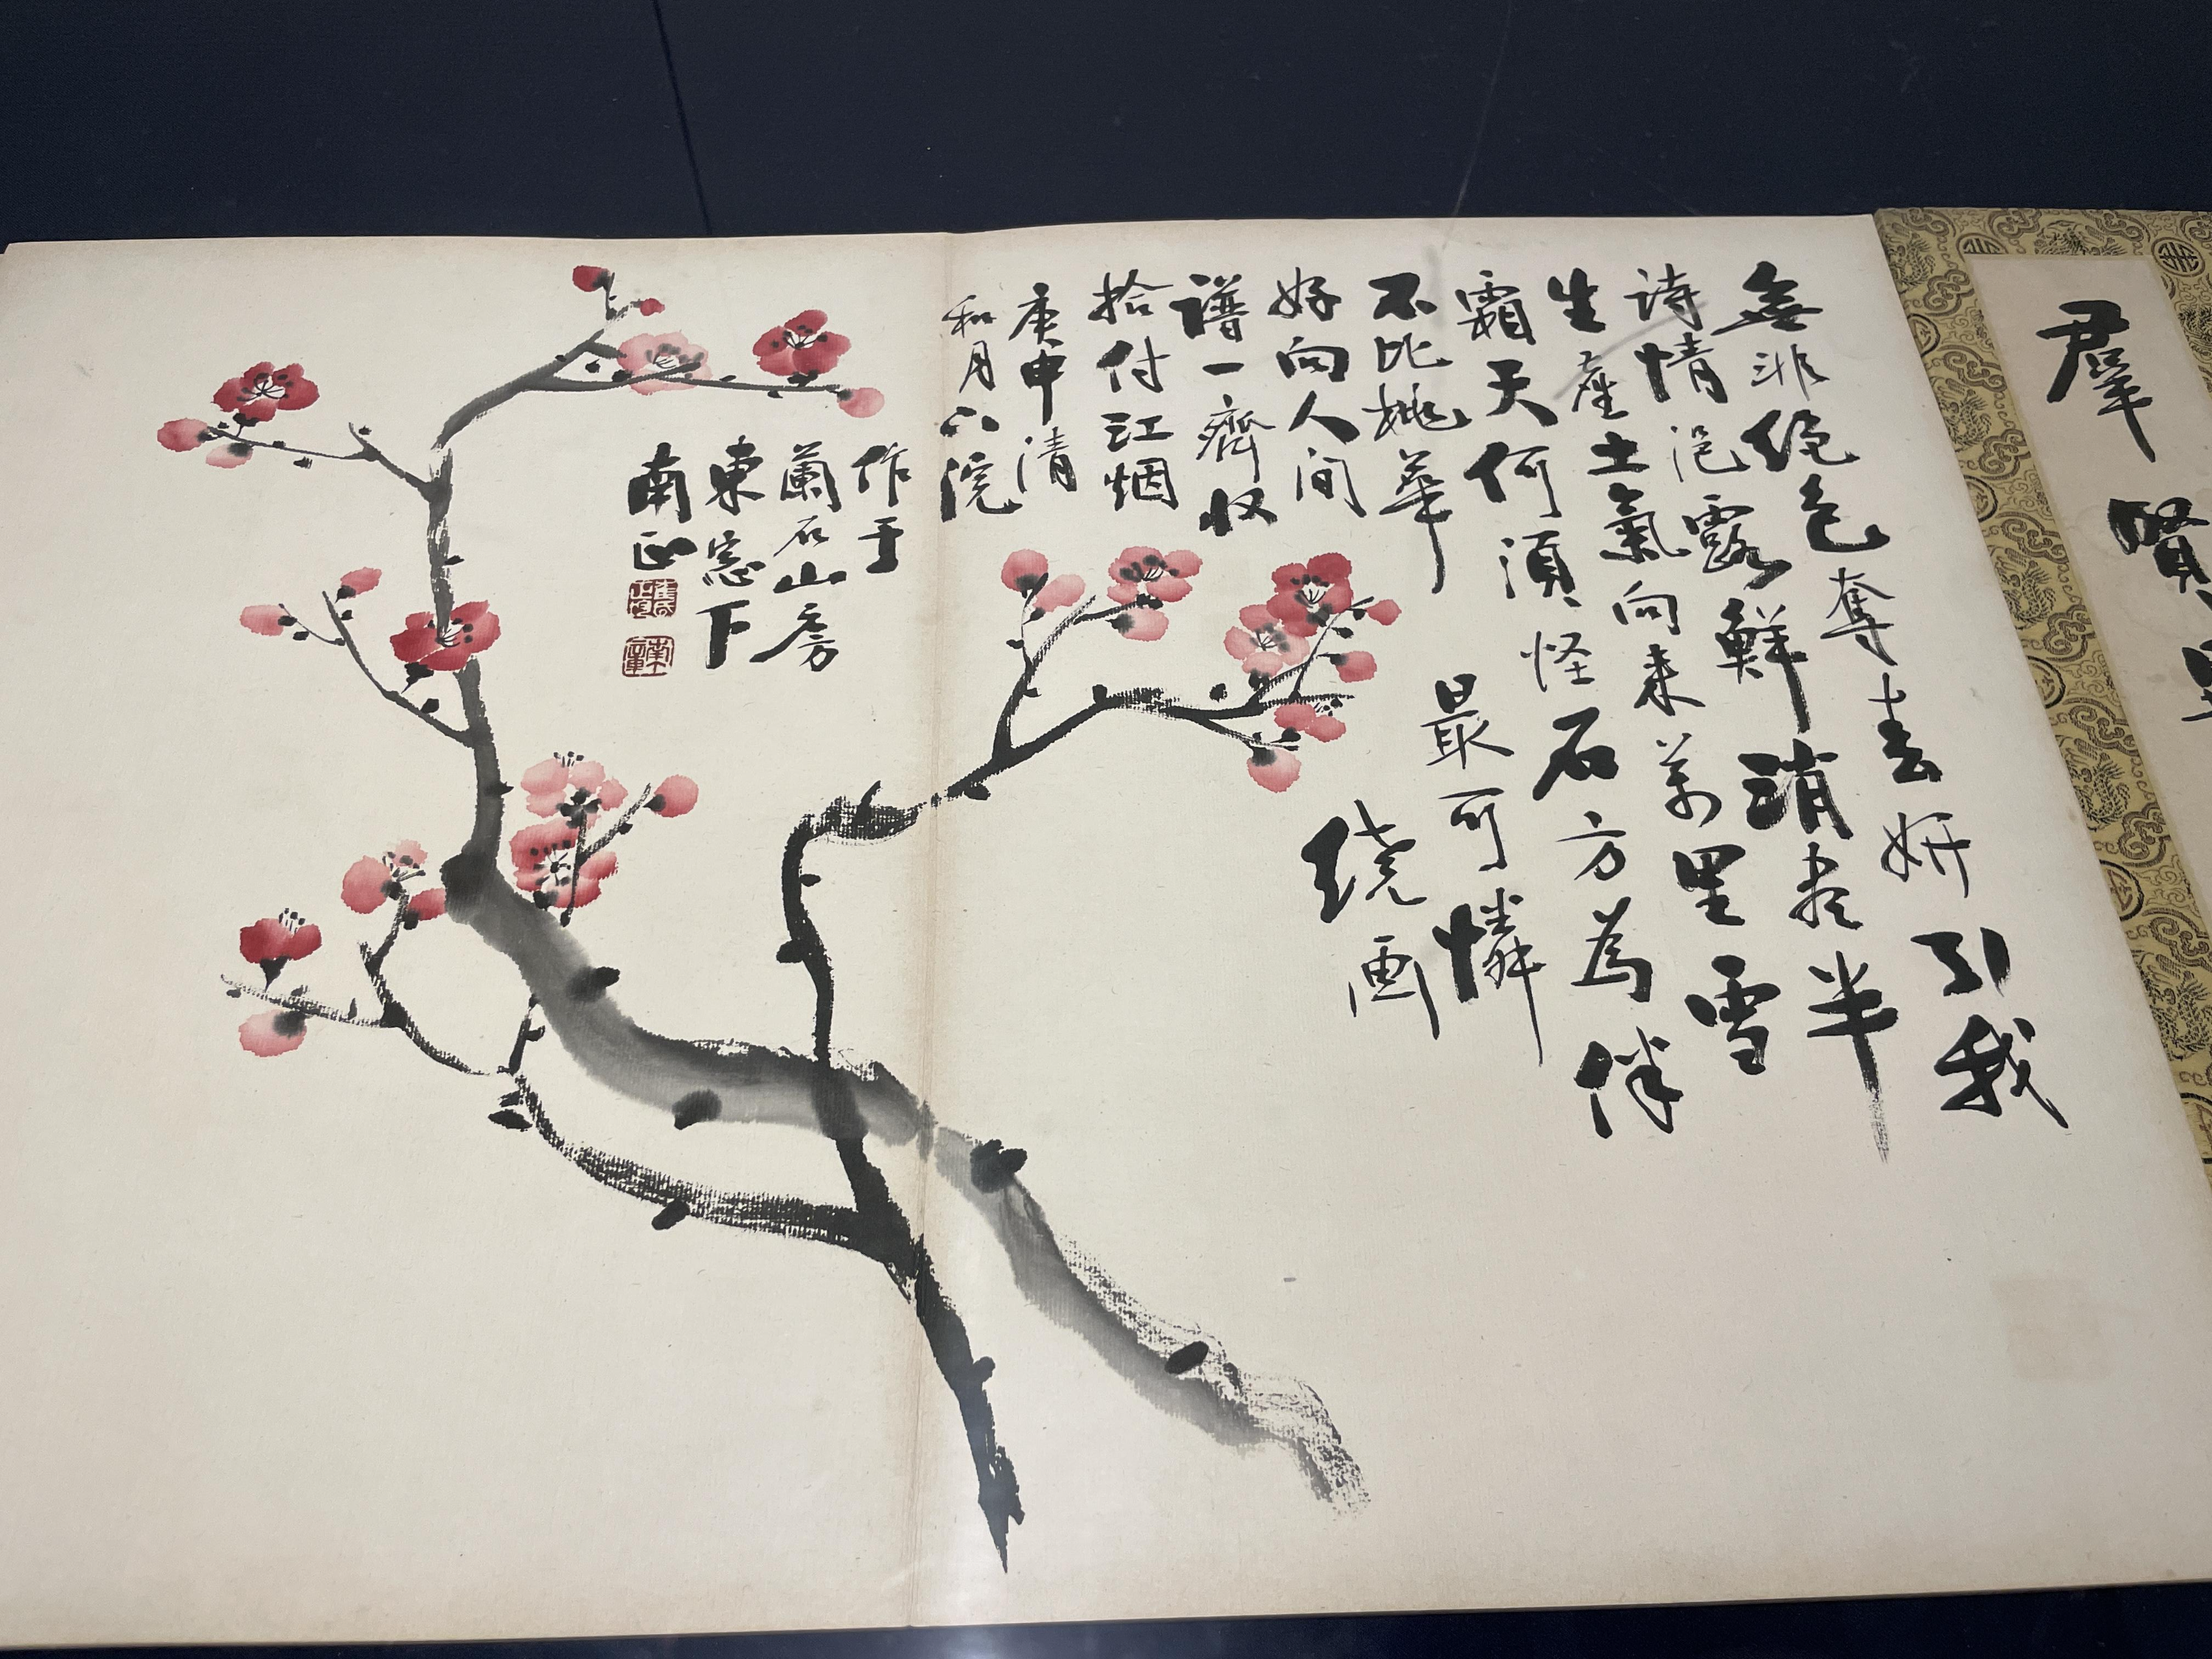 羣賢
無非絕色奪春妍引我
诗情浥露鮮消盡半
生塵土氣向来萬里雪
霜天何須怪石方為伴
不比桃華最可憐
好向人间繞画
譜一齊収
拾付江烟
庚申清
和月下浣
作于
蘭石山房
東窓下
南正